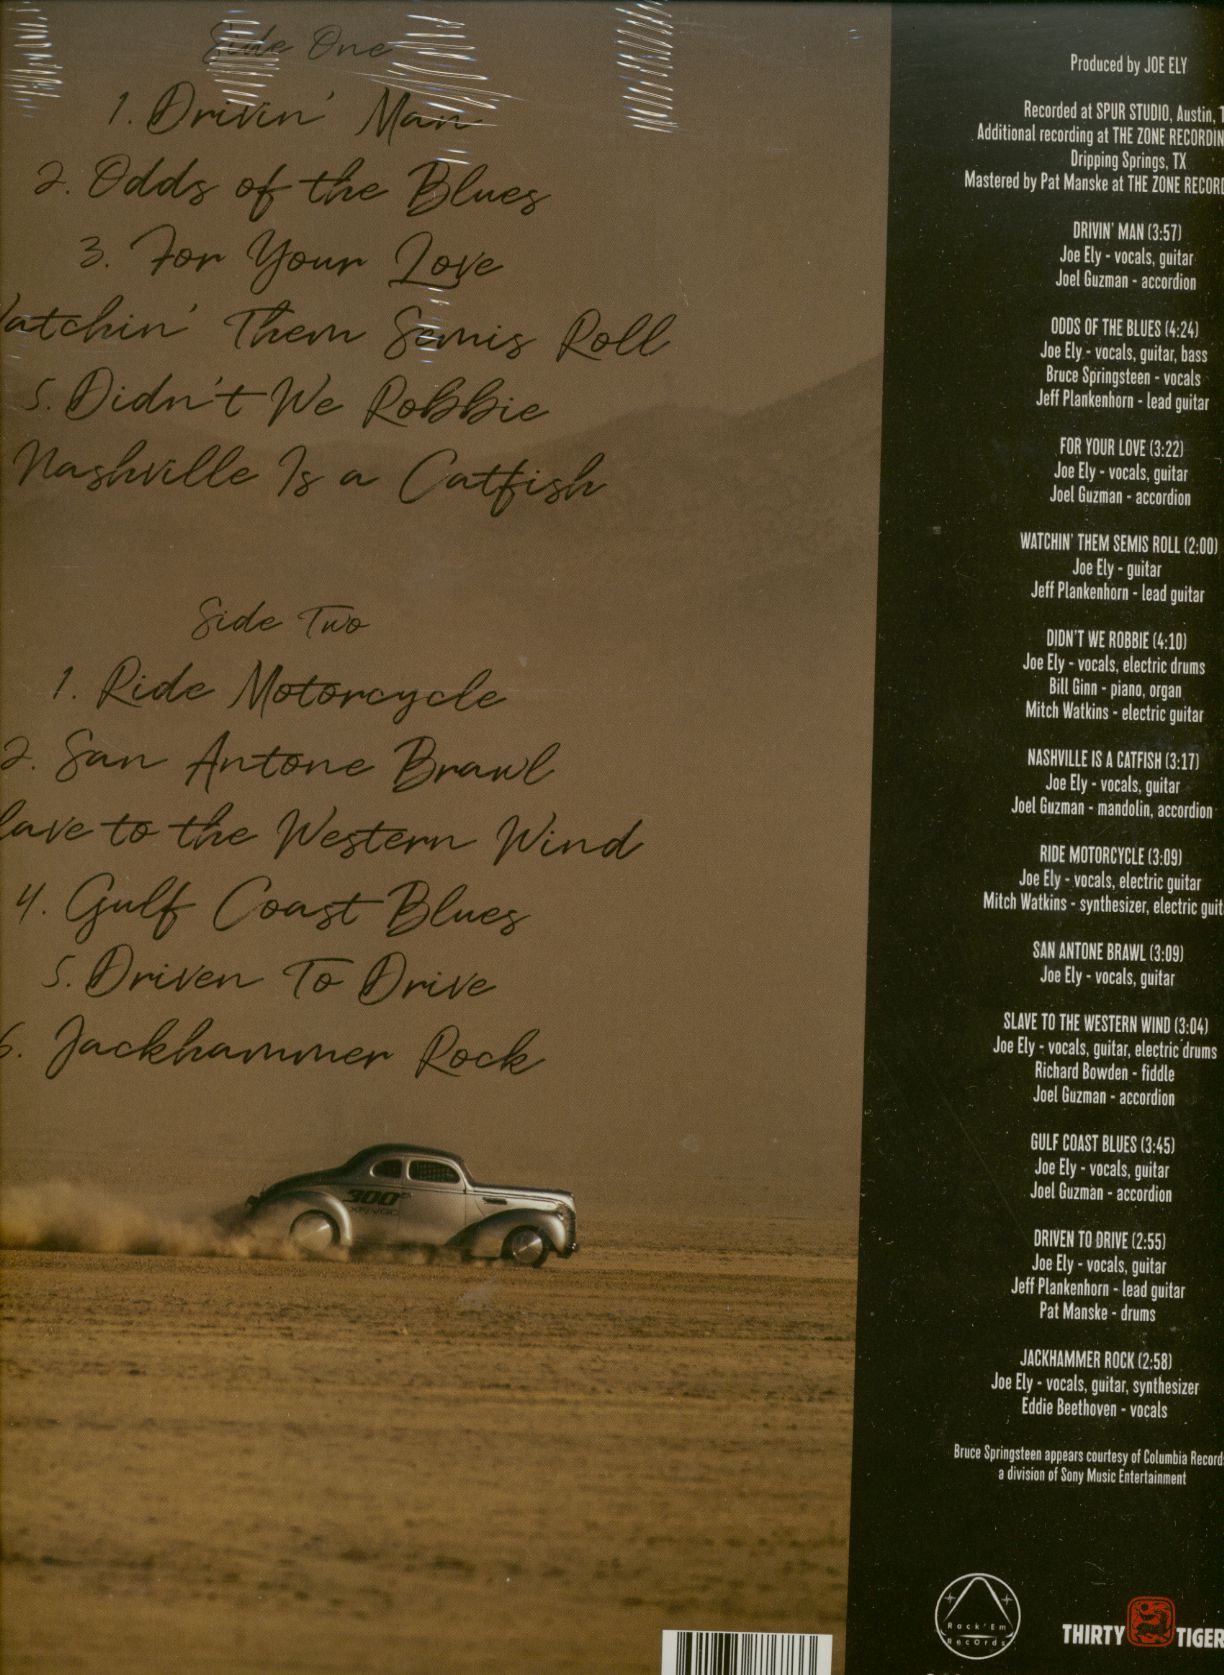 Side One
1. Drivin' Man
2. Odds of the Blues
3. For Your Love
Watchin' Them Semis Roll
5. Didn't We Robbie
Nashville Is a Catfish
Side Two
1. Ride Motorcycle
2. San Antone Brawl
lave to the Western Wind
4. Gulf Coast Blues
5. Driven To Drive
6. Jackhammer Rock
300
Produced by JOE ELY
Recorded at SPUR STUDIO, Austin, T
Additional recording at THE ZONE RECORDIN
Dripping Springs, TX
Mastered by Pat Manske at THE ZONE RECORD
DRIVIN' MAN (3:57)
Joe Ely - vocals, guitar
Joel Guzman - accordion
ODDS OF THE BLUES (4:24)
Joe Ely - vocals, guitar, bass
Bruce Springsteen - vocals
Jeff Plankenhorn - lead guitar
FOR YOUR LOVE (3:22)
Joe Ely - vocals, guitar
Joel Guzman - accordion
WATCHIN' THEM SEMIS ROLL (2:00)
Joe Ely - guitar
Jeff Plankenhorn - lead guitar
DIDN'T WE ROBBIE (4:10)
Joe Ely - vocals, electric drums
Bill Ginn - piano, organ
Mitch Watkins - electric guitar
NASHVILLE IS A CATFISH (3:17)
Joe Ely - vocals, guitar
Joel Guzman - mandolin, accordion
RIDE MOTORCYCLE (3:09)
Joe Ely - vocals, electric guitar
Mitch Watkins - synthesizer, electric guit
SAN ANTONE BRAWL (3:09)
Joe Ely - vocals, guitar
SLAVE TO THE WESTERN WIND (3:04)
Joe Ely - vocals, guitar, electric drums
Richard Bowden - fiddle
Joel Guzman - accordion
GULF COAST BLUES (3:45)
Joe Ely - vocals, guitar
Joel Guzman - accordion
DRIVEN TO DRIVE (2:55)
Joe Ely - vocals, guitar
Jeff Plankenhorn - lead guitar
Pat Manske - drums
JACKHAMMER ROCK (2:58)
Joe Ely - vocals, guitar, synthesizer
Eddie Beethoven - vocals
Bruce Springsteen appears courtesy of Columbia Records
a division of Sony Music Entertainment
Rack'Em
Records
THIRTY TIGER